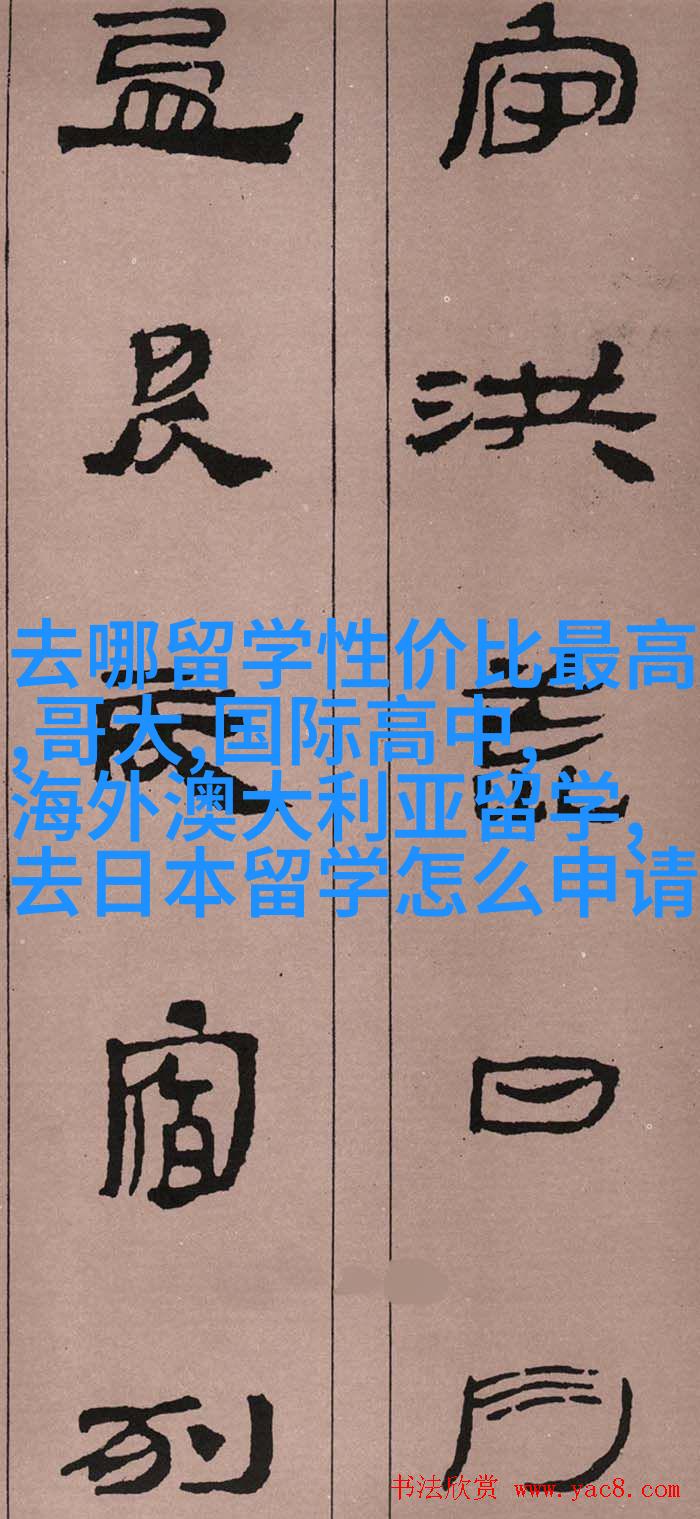 宇洪荒日月
盈昃辰宿列
去哪留学性价比最高
,哥大,国际高中,
海外澳大利亚留学,
去日本留学怎么申请
书法欣赏 www.yac8.com